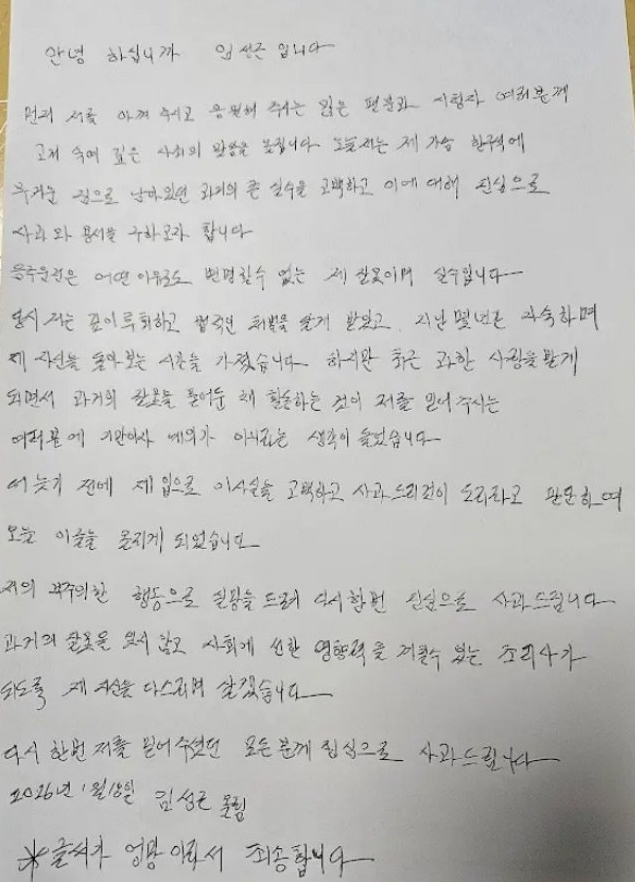 안녕 하십니까 임성근 입니다
먼저 저를 아껴 주시고 응원해 주시는 많은 팬분과 시청자 여러분께
고개 숙여 깊은 사죄의 말씀을 올립니다 오늘 저는 제 가슴 한구석에
무거운 짐으로 남아있던 과거의 큰 실수를 고백하고 이에 대해 진심으로
사과와 용서를 구하고자 합니다
음주운전은 어떤 이유로도 변명할수 없는 제 잘못이며 실수입니다
당시 저는 깊이 후회하고 법적인 처벌을 달게 받았고, 지난 몇년간 자숙하며
제 자신을 돌아보는 시간을 가졌습니다 하지만 최근 과한 사랑을 받게
되면서 과거의 잘못을 묻어둔 채 활동하는 것이 저를 믿어 주시는
여러분에 기만이자 예의가 아니라는 생각이 들었습니다
더 늦기 전에 제 입으로 이사실을 고백하고 사과 드리것이 도리라고 판단하여
오늘 이글을 올리게 되었습니다
저의 부주의한 행동으로 실망을 드려 다시한번 진심으로 사과드립니다
과거의 잘못을 잊지 않고 사회에 선한 영향력을 끼칠수 있는 조리사가
되도록 제 자신을 다스리며 살겠습니다
다시 한번 저를 믿어주셨던 모든분께 진심으로 사과드립니다
2026년 1월18일 임성근 올림
*글씨가 엉망이라서 죄송합니다